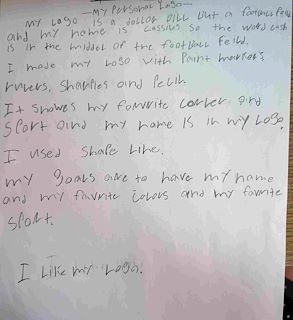 —My Personal Logo—
My Logo is a dollar bill but a football feild
and my name is Cassius so the word cash
is in the middel of the football feild.
I made my Logo with Paint marker's
rulers, Sharpies and Pecil.
It shows my favorite color and
sport and my name is in my Logo.
I used shape line.
my goals are to have my name
and my favrite colors and my favorite
sport.
I Like my Logo.